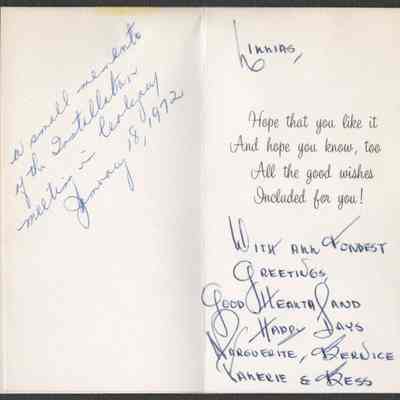 a small memento
of the Installation
meeting in
January 18, 1972
Hope that you like it
And hope you know, too
All the good wishes
Included for you!
With all Fondest
Greetings,
Good Health and
Happy Days
Marguerite, Bernice
Valerie & Bess